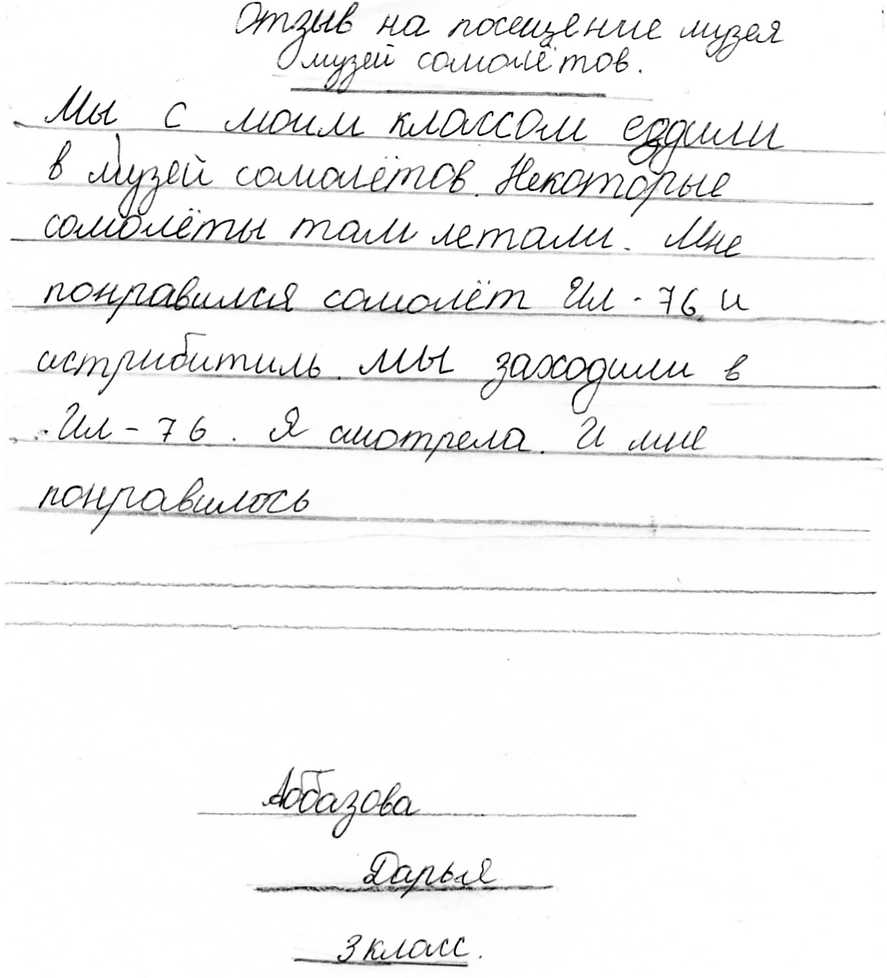 Отзыв на посещение музея
музей самолётов.
Мы с моим классом ездили
в музей самолётов. Некоторые
самолёты там летали. Мне
понравился самолёт Ил-76 и
истрибитиль. Мы заходили в
Ил-76. Я смотрела. И мне
понравилось
Аббазова
Дарья
3 класс.